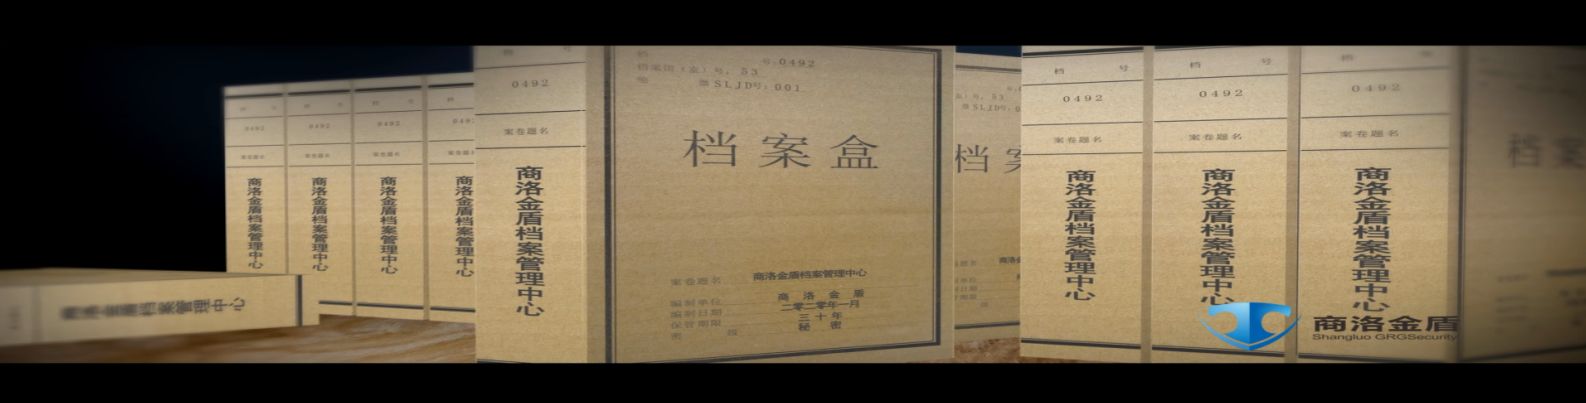 档 号
0492
案卷题名
商洛金盾档案管理中心
0492
案卷题名
商洛金盾档案管理中心
0492
案卷题名
商洛金盾档案管理中心
0492
案卷题名
商洛金盾档案管理中心
0492
案卷题名
商洛金盾档案管理中心
号:0492
档案馆（室）号: 53
SLJD号: 001
档案盒
案卷题名 商洛金盾档案管理中心
编制单位 商洛金盾
编制日期 二零二零年一月
保管期限 三十年
密 级 秘密
档
档 号
0492
案卷题名
商洛金盾档案管理中心
档 号
0492
案卷题名
商洛金盾档案管理中心
0492
案卷题名
商洛金盾档案管理中心
档案
商洛金盾档案管理中心
商洛金盾
Shangluo GRGSecurity